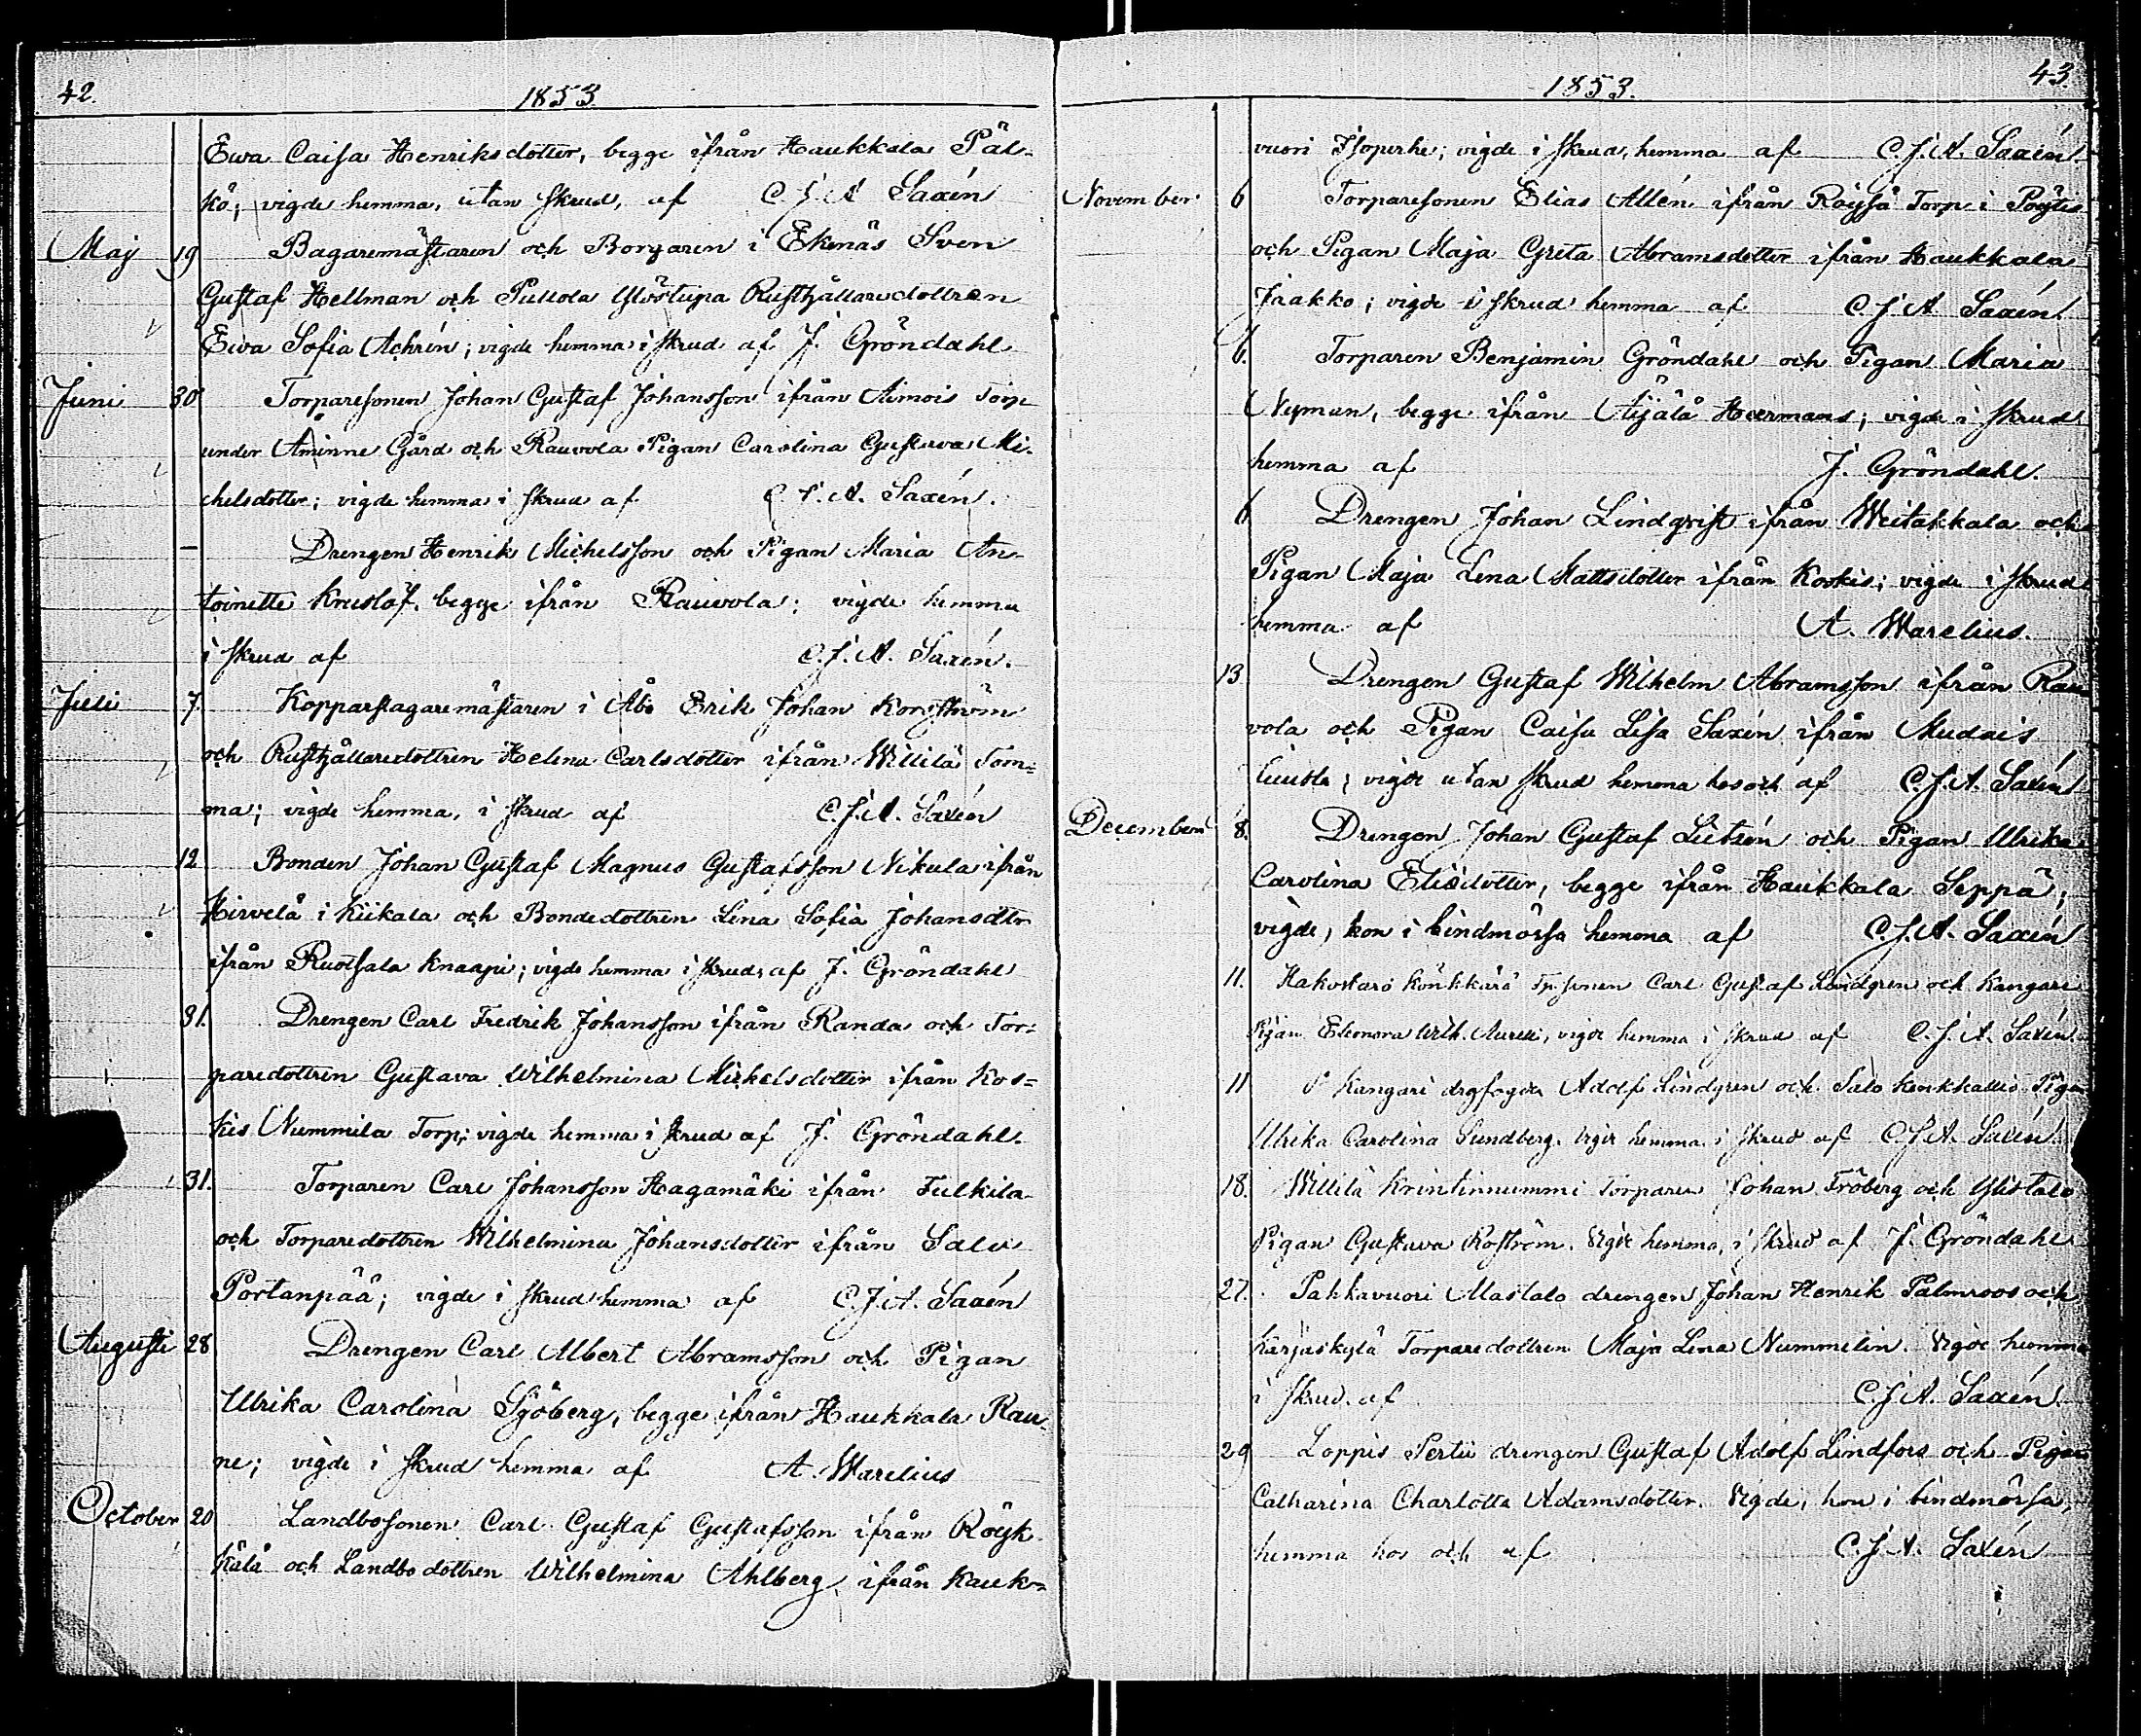 42.
1853.
Ewa Caisa Henriksdotter, begge ifrån Haukkala Päl-
kö; vigde hemma, utan skrud, af C. J. A Saxén
Maj 19 Bagaremästaren och Borgaren i Ekenäs Sven
Gustaf Hellman och Pullola Yöstupa Rusthållaredottren
Ewa Sofia Achrén; vigde hemma i skrud af J. Gröndahl
Juni 30 Torparesonen Johan Gustaf Johansson ifrån Aimois Torp
under Åminne Gård och Rauvola Pigan Carolina Gustava Mi-
chelsdotter; vigde hemma i skrud af C. J. A. Saxén.
— Drengen Henrik Michelsson och Pigan Maria An-
toinette Krusløf, begge ifrån Rauvola; vigde hemma
i skrud af C. J. A. Saxén.
Juli 7. Kopparslagaremästaren i Åbo Erik Johan Korsström
och Rusthållaredottren Helena Carlsdotter ifrån Willilä Tom-
ma; vigde hemma, i skrud af C. J. A. Saxén
12 Bonden Johan Gustaf Magnus Gustafsson Nikula ifrån
Hirvelä i Kiikala och Bondedottren Lena Sofia Johansdtr
ifrån Ruotsala Knaapi; vigde hemma i skrud af J. Gröndahl
31. Drengen Carl Fredrik Johansson ifrån Randa och Tor-
paredottren Gustava Wilhelmina Michelsdotter ifrån Kos-
kis Nummila Torp; vigde hemma i skrud af J. Gröndahl.
31. Torparen Carl Johansson Hagamäki ifrån Fulkila
och Torparedottren Wilhelmina Johansdotter ifrån Salo
Portanpää; vigde i skrud hemma af C. J. A. Saxén
Augusti 28 Drengen Carl Albert Abramsson och Pigan
Ulrika Carolina Sjöberg, begge ifrån Haukkala Rau-
ne; vigde i skrud hemma af A. Warelius
October 20 Landbosonen Carl Gustaf Gustafsson ifrån Röyk-
kälä och Landbodottren Wilhelmina Ahlberg, ifrån Kauko-
43.
1853.
vuori Isoperhe; vigde i skrud, hemma af C. J. A. Saxén
November 6 Torparesonen Elias Allén ifrån Röyssä Torp i Pöytis
och Pigan Maja Greta Abramsdotter ifrån Haukkala
Jaakko; vigde i skrud hemma af C. J. A Saxén.
6. Torparen Benjamin Gröndahl och Pigan Maria
Nyman, begge ifrån Äijälä Heermans; vigde i skrud
hemma af J. Gröndahl.
6 Drengen Johan Lindqvist ifrån Weitakkala och
Pigan Maja Lena Mattsdotter ifrån Koskis; vigde i skrud
hemma af A. Warelius.
13 Drengen Gustaf Wilhelm Abramsson ifrån Rau-
vola och Pigan Caisa Lisa Saxén ifrån Mudais
vigde utan skrud hemma hos och af C. J. A. Saxén
December 8. Drengen Johan Gustaf Lietzén och Pigan Ulrika
Carolina Elisdotter, begge ifrån Haukkala Seppä;
vigde, hon i bindmössa hemma af C. J. A. Saxén
11. Hakostarö Könkkärä Tp. sonen Carl Gustaf Lindgren och Kangari
Pigan Eleonora Wilh. vigde hemma i skrud af C. J. A. Saxén
11 Kangari drgfogden Adolf Lindgren och Salo Pigan
Ulrika Carolina Sundberg. Vigde hemma i skrud af C. J. A. Saxén.
18. Willilä Krintinnummi Torparen Johan Fröberg och Ylistalo
Pigan Gustava Roström. Vigde hemma, i skrud af J. Gröndahl
27. Pahkavuori Mastalo drengen Johan Henrik Palmroos och
Karjaskylä Torparedottren Maja Lena Nummelin. Vigde hemma
i skrud af C. J. A. Saxén.
29 Loppis Perttu drengen Gustaf Adolf Lindfors och Pigan
Catharina Charlotta Adamsdotter. Vigde, hon i bindmössa,
hemma hos och af C. J. A. Saxén